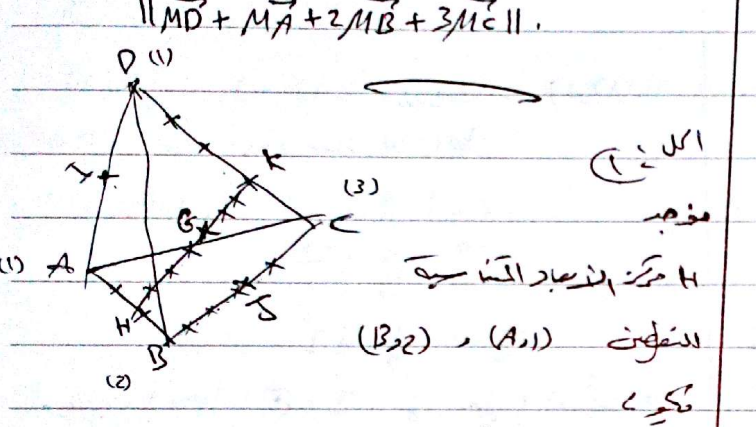 ‖MD + MA + 2MB + 3MC‖.
D (1)
I
K
(3)
G
C
(1) A
J
H
B
(2)
الحل: 1)
نوجد
H مركز الأبعاد المتناسبة
للنقطتين (A,1) , (B,2)